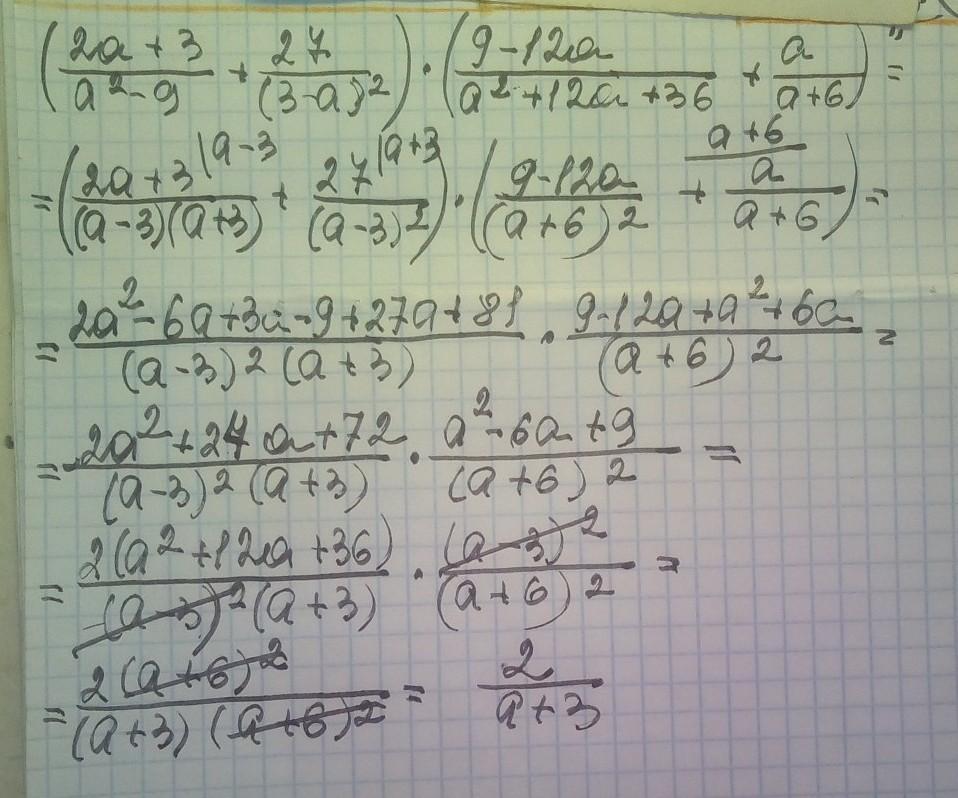 (2a + 3 / a² - 9 + 27 / (3-a)²) · (9 - 12a / a² + 12a + 36 + a / a+6) =
= (2a + 3 |a-3 / (a-3)(a+3) + 27 |a+3 / (a-3)²) · (9 - 12a / (a+6)² + a+6 / a / a+6) =
= 2a² - 6a + 3a - 9 + 27a + 81 / (a-3)² (a+3) · 9 - 12a + a² + 6a / (a+6)² =
= 2a² + 24a + 72 / (a-3)² (a+3) · a² - 6a + 9 / (a+6)² =
= 2(a² + 12a + 36) / (a-3)² (a+3) · (a-3)² / (a+6)² =
= 2(a+6)² / (a+3) (a+6)² = 2 / a+3